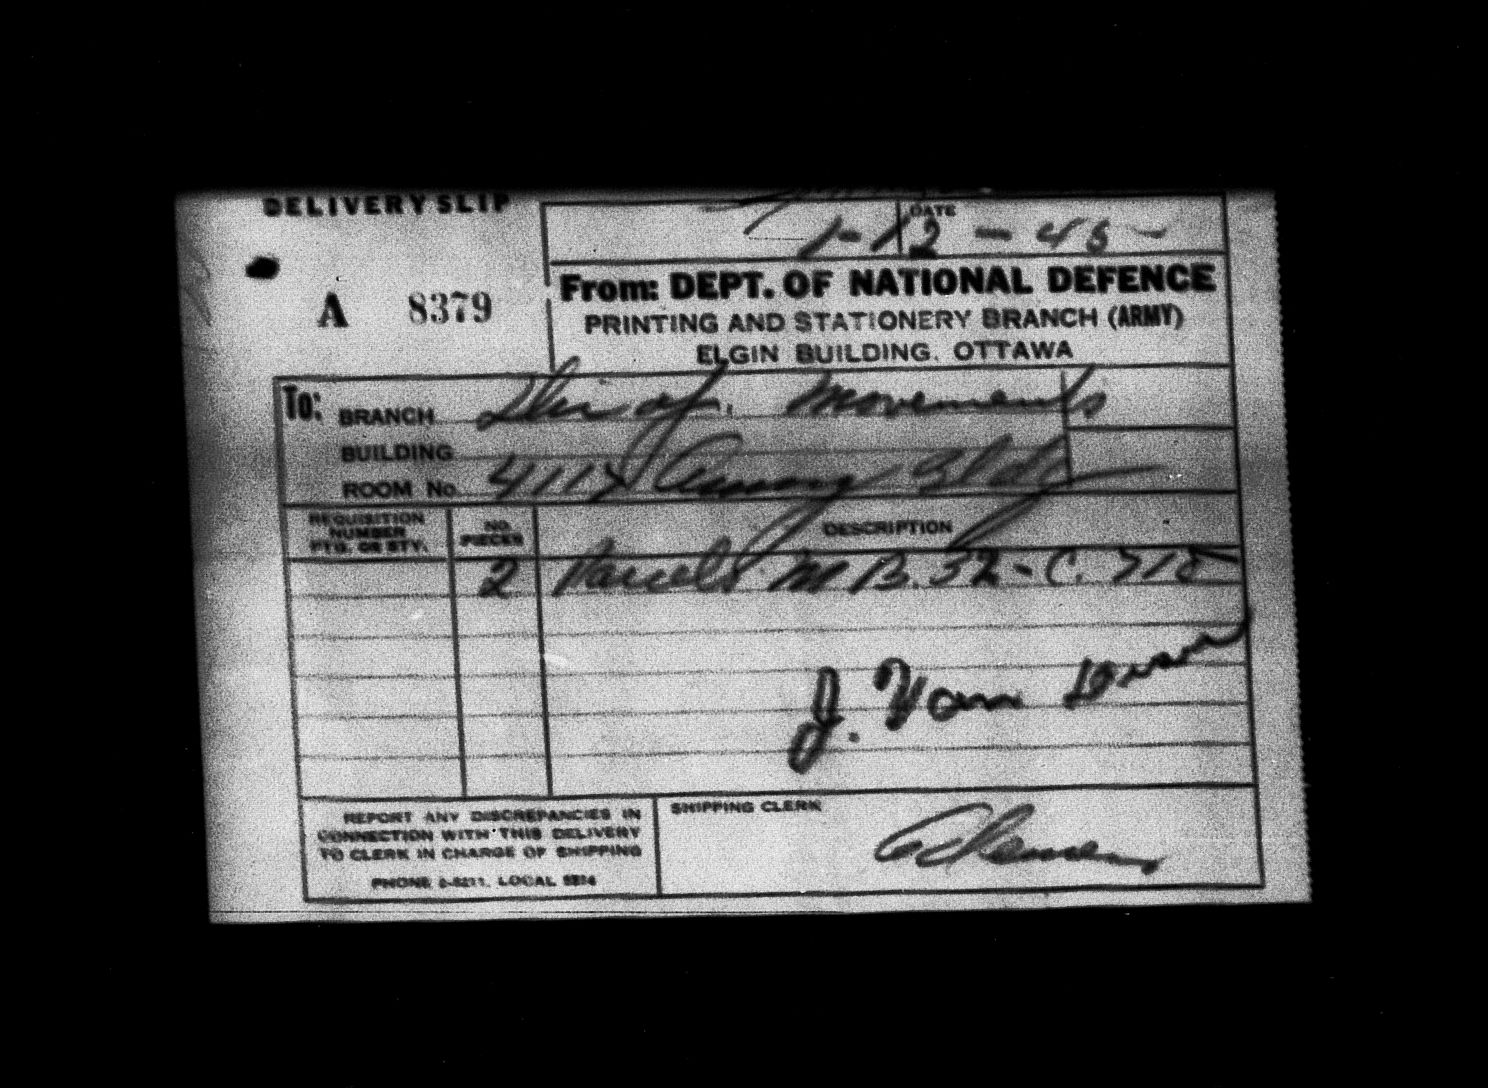 DELIVERY SLIP
DATE
1-12-45
A 8379
From: DEPT. OF NATIONAL DEFENCE
PRINTING AND STATIONERY BRANCH (ARMY)
ELGIN BUILDING. OTTAWA
To: BRANCH Dir of. Movements
BUILDING
ROOM No. 4117 Army Bldg
REQUISITION NUMBER PTG. OR STY.
NO. PIECES
DESCRIPTION
2 Parcels M B. 32-C. 715
J. Van
REPORT ANY DISCREPANCIES IN
CONNECTION WITH THIS DELIVERY
TO CLERK IN CHARGE OF SHIPPING
PHONE LOCAL
SHIPPING CLERK